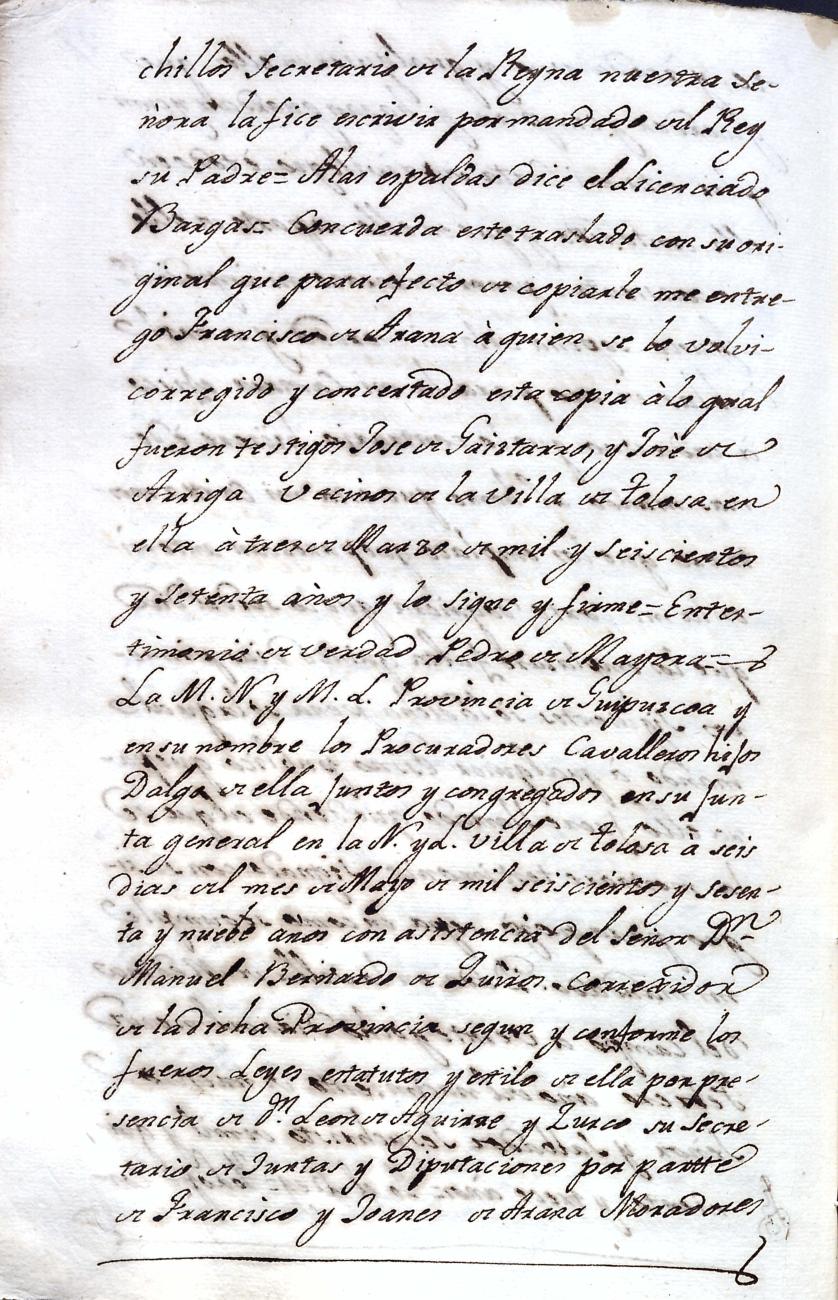 chillos Secretario de la Reyna nuestra Se-
ñora la fice escrivir por mandado del Rey
su Padre= A las espaldas dice el Licenciado
Bargas= Concuerda este traslado con su ori-
ginal que para efecto de copiarle me entre-
gó Francisco de Arana à quien se lo volvi-
corregido y concertado esta copia à lo qual
fueron testigos Jose de Gaiztarro, y Jose de
Arriga Vecinos de la Villa de tolosa en
ella à tres de Marzo de mil y seiscientos
y Setenta años y lo signe y firme= Entes-
timonio de verdad Pedro de Mayora=
La M. N. y M. L. Provincia de Guipuzcoa y
en su nombre los Procuradores Cavalleros hijos
Dalgo de ella Juntos y congregados en su Jun-
ta general en la N. y L. Villa de tolosa à seis
dias del mes de Mayo de mil seiscientos y sesen-
ta y nuebe años con asistencia del Señor Dn
Manuel Bernardo de Quiros Correxidor
de la dicha Provincia segun y conforme los
fueros Leyes estatutos y estilo de ella por pre-
sencia de Dn Leon de Aguirre y Zurco su Secre-
tario de Juntas y Diputaciones por partte
de Francisco y Joanes de Arana Moradores